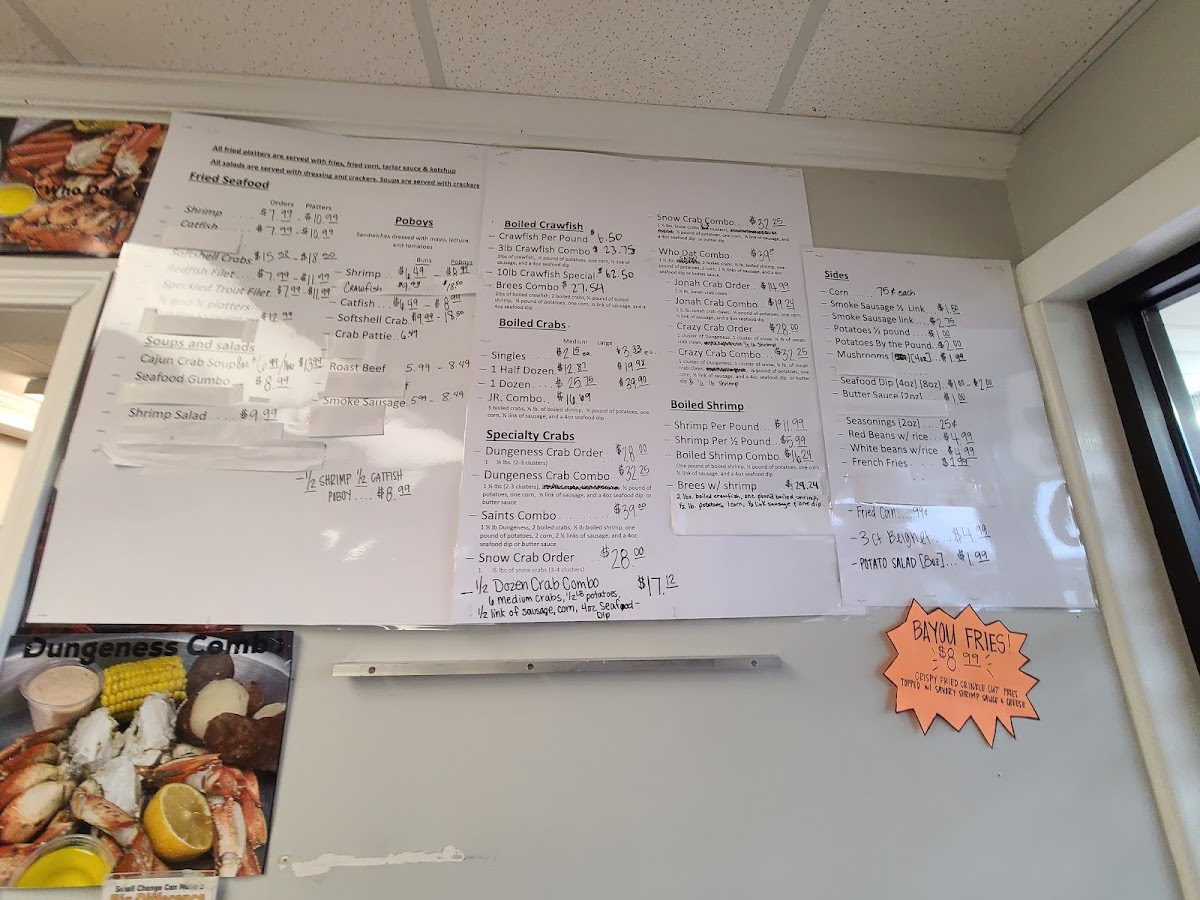 All fried platters are served with fries, fried corn, tarter sauce & ketchup
All salads are served with dressing and crackers. Soups are served with crackers
Fried Seafood
Orders Platters
Shrimp $7.99 - $10.99
Catfish $7.99 - $10.99
Softshell Crabs $15.50 - $18.50
Redfish Filet $7.99 - $11.99
Speckled Trout Filet $7.99 - $11.99
½ and ½ platters $12.99
Soups and salads
Cajun Crab Soup
Seafood Gumbo $8.99
Shrimp Salad $9.99
Poboys
Sandwiches dressed with mayo, lettuce, and tomatoes
Buns Poboys
Shrimp $6.49
Crawfish
Catfish $6.49 - 8.99
Softshell Crab
Crab Pattie 6.49
Roast Beef 5.99 - 8.49
Smoke Sausage 5.99 - 8.49
- ½ SHRIMP ½ CATFISH
POBOY .... $8.99
Boiled Crawfish
- Crawfish Per Pound $6.50
- 3lb Crawfish Combo $23.75
3lbs of crawfish, ½ pound of potatoes, one corn, ½ link of
sausage, and a 4oz seafood dip
- 10lb Crawfish Special $62.50
- Brees Combo $27.54
2lbs of boiled crawfish, 2 boiled crabs, ½ pound of boiled
shrimp, ½ pound of potatoes, one corn, ½ link of sausage, and a
4oz seafood dip
Boiled Crabs
Medium Large
- Singles $2.15 ea $3.33 ea.
- 1 Half Dozen $12.87 $19.92
- 1 Dozen $25.75 $39.90
- JR. Combo $16.69
3 boiled crabs, ½ lb. of boiled shrimp, ½ pound of potatoes, one
corn, ½ link of sausage, and a 4oz seafood dip
Specialty Crabs
- Dungeness Crab Order $28.00
1 ½ lbs (2-3 clusters)
- Dungeness Crab Combo $32.25
1 ½ lbs (2-3 clusters), ½ pound of
potatoes, one corn, ½ link of sausage, and a 4oz seafood dip or
butter sauce
- Saints Combo $39.00
1 ½ lb Dungeness, 2 boiled crabs, ½ lb boiled shrimp, one
pound of potatoes, 2 corn, 2 ½ links of sausage, and a 4oz
seafood dip or butter sauce
- Snow Crab Order $28.00
1 ½ lbs of snow crabs (3-4 clusters)
- ½ Dozen Crab Combo $17.12
6 medium crabs, ½ lb potatoes,
½ link of sausage, corn, 4oz Seafood
Dip
- Snow Crab Combo $32.25
pound of potatoes, one corn, ½ link of sausage, and a
4oz seafood dip or butter dip
Who Dat Combo
pound of potatoes, 2 corn, 2 ½ links of sausage, and a 4oz
seafood dip or butter sauce.
- Jonah Crab Order $14.99
1 ½ lb. Jonah crab claws
- Jonah Crab Combo $19.24
1 ½ lb. Jonah crab claws, ½ pound of potatoes, one corn,
½ link of sausage, and a 4oz seafood dip
- Crazy Crab Order $28.00
1 cluster of Dungeness, 1 cluster of snow, ½ lb of Jonah
crab claws,
- Crazy Crab Combo $32.25
1 cluster of Dungeness, 1 cluster of snow, ½ lb. of Jonah
crab claws, ½ pound of
potatoes, one corn, ½ link of sausage, and a 4oz seafood dip or butter
dip & ½ lb shrimp
Boiled Shrimp
- Shrimp Per Pound $11.99
- Shrimp Per ½ Pound $5.99
- Boiled Shrimp Combo $16.24
One pound of boiled shrimp, ½ pound of potatoes, one corn,
½ link of sausage, and a 4oz seafood dip
- Brees w/ shrimp $29.24
2 lbs. boiled crawfish, one pound boiled shrimp,
½ lb. potatoes, 1 corn, ½ link sausage & one dip
Sides
- Corn .... 75¢ each
- Smoke Sausage ½ Link $1.50
- Smoke Sausage link $2.75
- Potatoes ½ pound $1.00
- Potatoes By the Pound $2.00
- Mushrooms [4oz] $1.99
- Seafood Dip [4oz] [8oz] $1.00 - $2.00
- Butter Sauce [2oz] $1.00
Seasonings [2oz] 25¢
- Red Beans w/ rice $4.99
- White beans w/rice $4.99
- French Fries $1.99
- Fried Corn .... 99¢
- 3 Ct Beignet ... $4.99
- POTATO SALAD [8oz] ... $1.99
BAYOU FRIES!
$8.99
CRISPY FRIED CRINKLE CUT FRIES
TOPPED W/ SAVORY SHRIMP SAUCE & CHEESE
Who Dat
Dungeness Combo
Small Change Can Make a
Big Difference